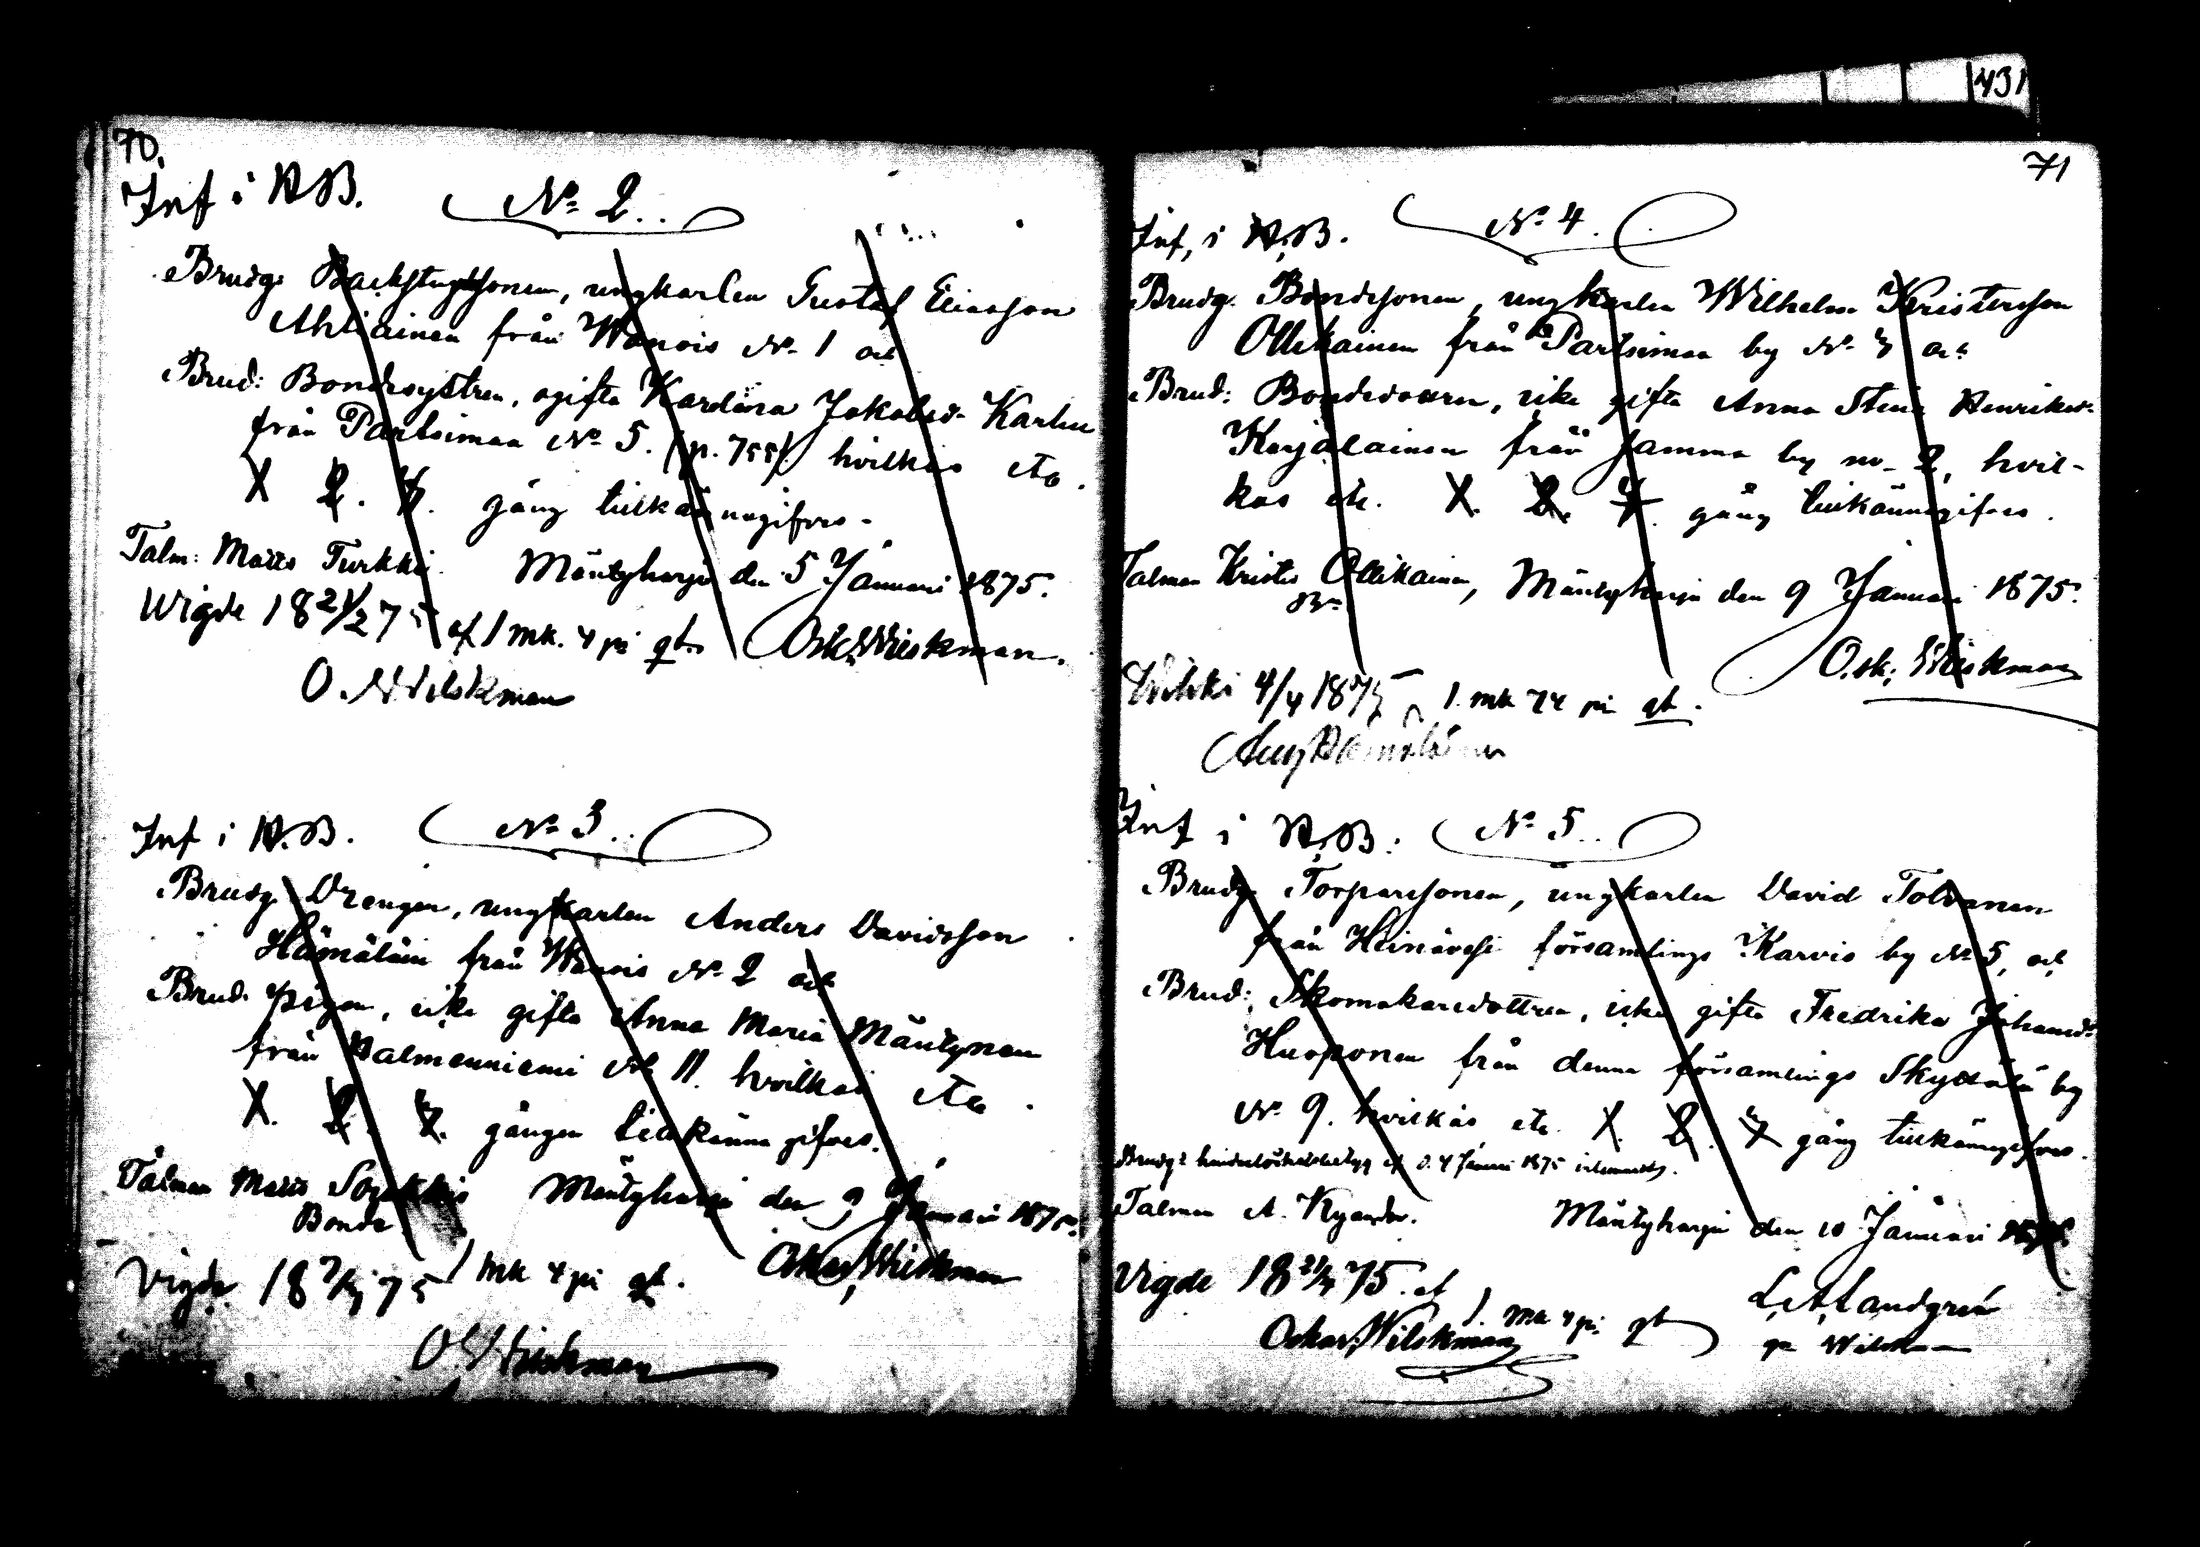 431
70.
Inf i H.B.
No 2.
Brudg: Backstugusonen, ungkarlen Gustaf Eliasson
Ahtiainen från Wanois No 1 och
Brud: Bondesystren, ogifta Karolina Jakobsd. Karhu
från Partsimaa No 5. (p. 755) hvilkas etc.
1. 2. 3. gång tillkännagifves.
Talm: Matts Turkki. Mäntyharju den 5 Januari 1875.
Wigde 18 21/2 75 af 1 mk. 4 pi qt. Osk. Wilskman.
O. Wilskman
Inf i H.B.
No 3.
Brudg. Drengen, ungkarlen Anders Davidsson
Hämäläin från Wanois No 2 och
Brud. pigan, icke gifta Anna Maria Mäntynen
från Halmenniemi No 11. hvilkas etc.
1. 2. 3. gången tillkänna gifves.
Talman Matts
Bonde
Mäntyharju den 9 Januari 1875.
Vigde 18 7/3 75 1 mk 4 pi qt. Oskar Wilskman
O. Wilskman
71
Inf. i H.B.
No 4.
Brudg. Bondesonen, ungkarlen Wilhelm Kristersson
Ollikainen från Partsimaa by No 3 och
Brud: Bondedottren, icke gifta Anna Stina Henriksd.
Karjalainen från Jamma by no 2, hvil-
kas etc. 1. 2. 3. gång tillkännagifves.
Talman Krister Ollikainen, Mäntyharju den 9 Januari 1875.
Osk. Wilskman
Vihki 4/4 1875 1. mk 74 pi qt.
Inf i H.B:
No 5.
Brudg. Torparesonen, ungkarlen David Tolvanen
från Heinävesi församlings Karvio by No 5, och
Brud: Skomakaredottren, icke gifta Fredrika Johansd.
Huoponen från denna församlings by
No 9. hvilkas etc. 1. 2. 3. gång tillkännagifves.
Brudgs hinderlöshetsbetyg af d. 4 Januari 1875 inlemnadt.
Talman A. Kyander. Mäntyharju den 10 Januari 1875.
Vigde 18 21/3 75. af
Oskar Wilskman 1 mk 4 pi qt
L. A. Landgrén
gm Wilskman